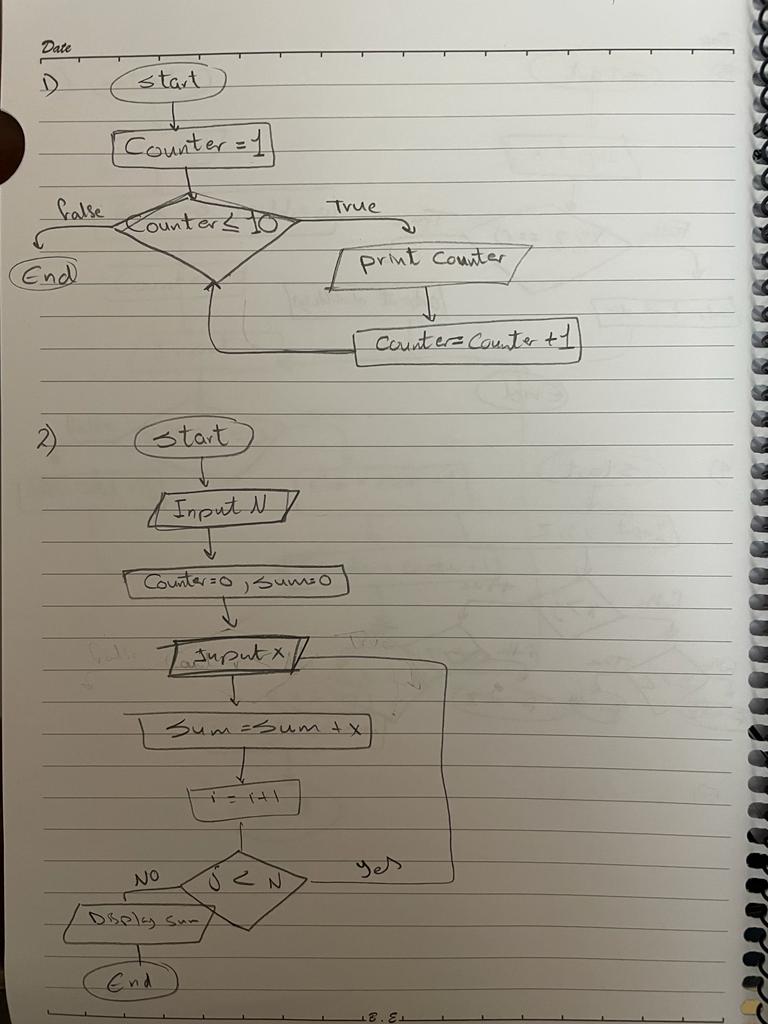 Date
1)
start
Counter = 1
false
True
Counter ≤ 10
End
print Counter
Counter = Counter + 1
2)
start
Input N
Counter=0 , sum=0
Input x
Sum = Sum + x
i = i+1
Yes
NO
j < N
Display sum
End
B.E.